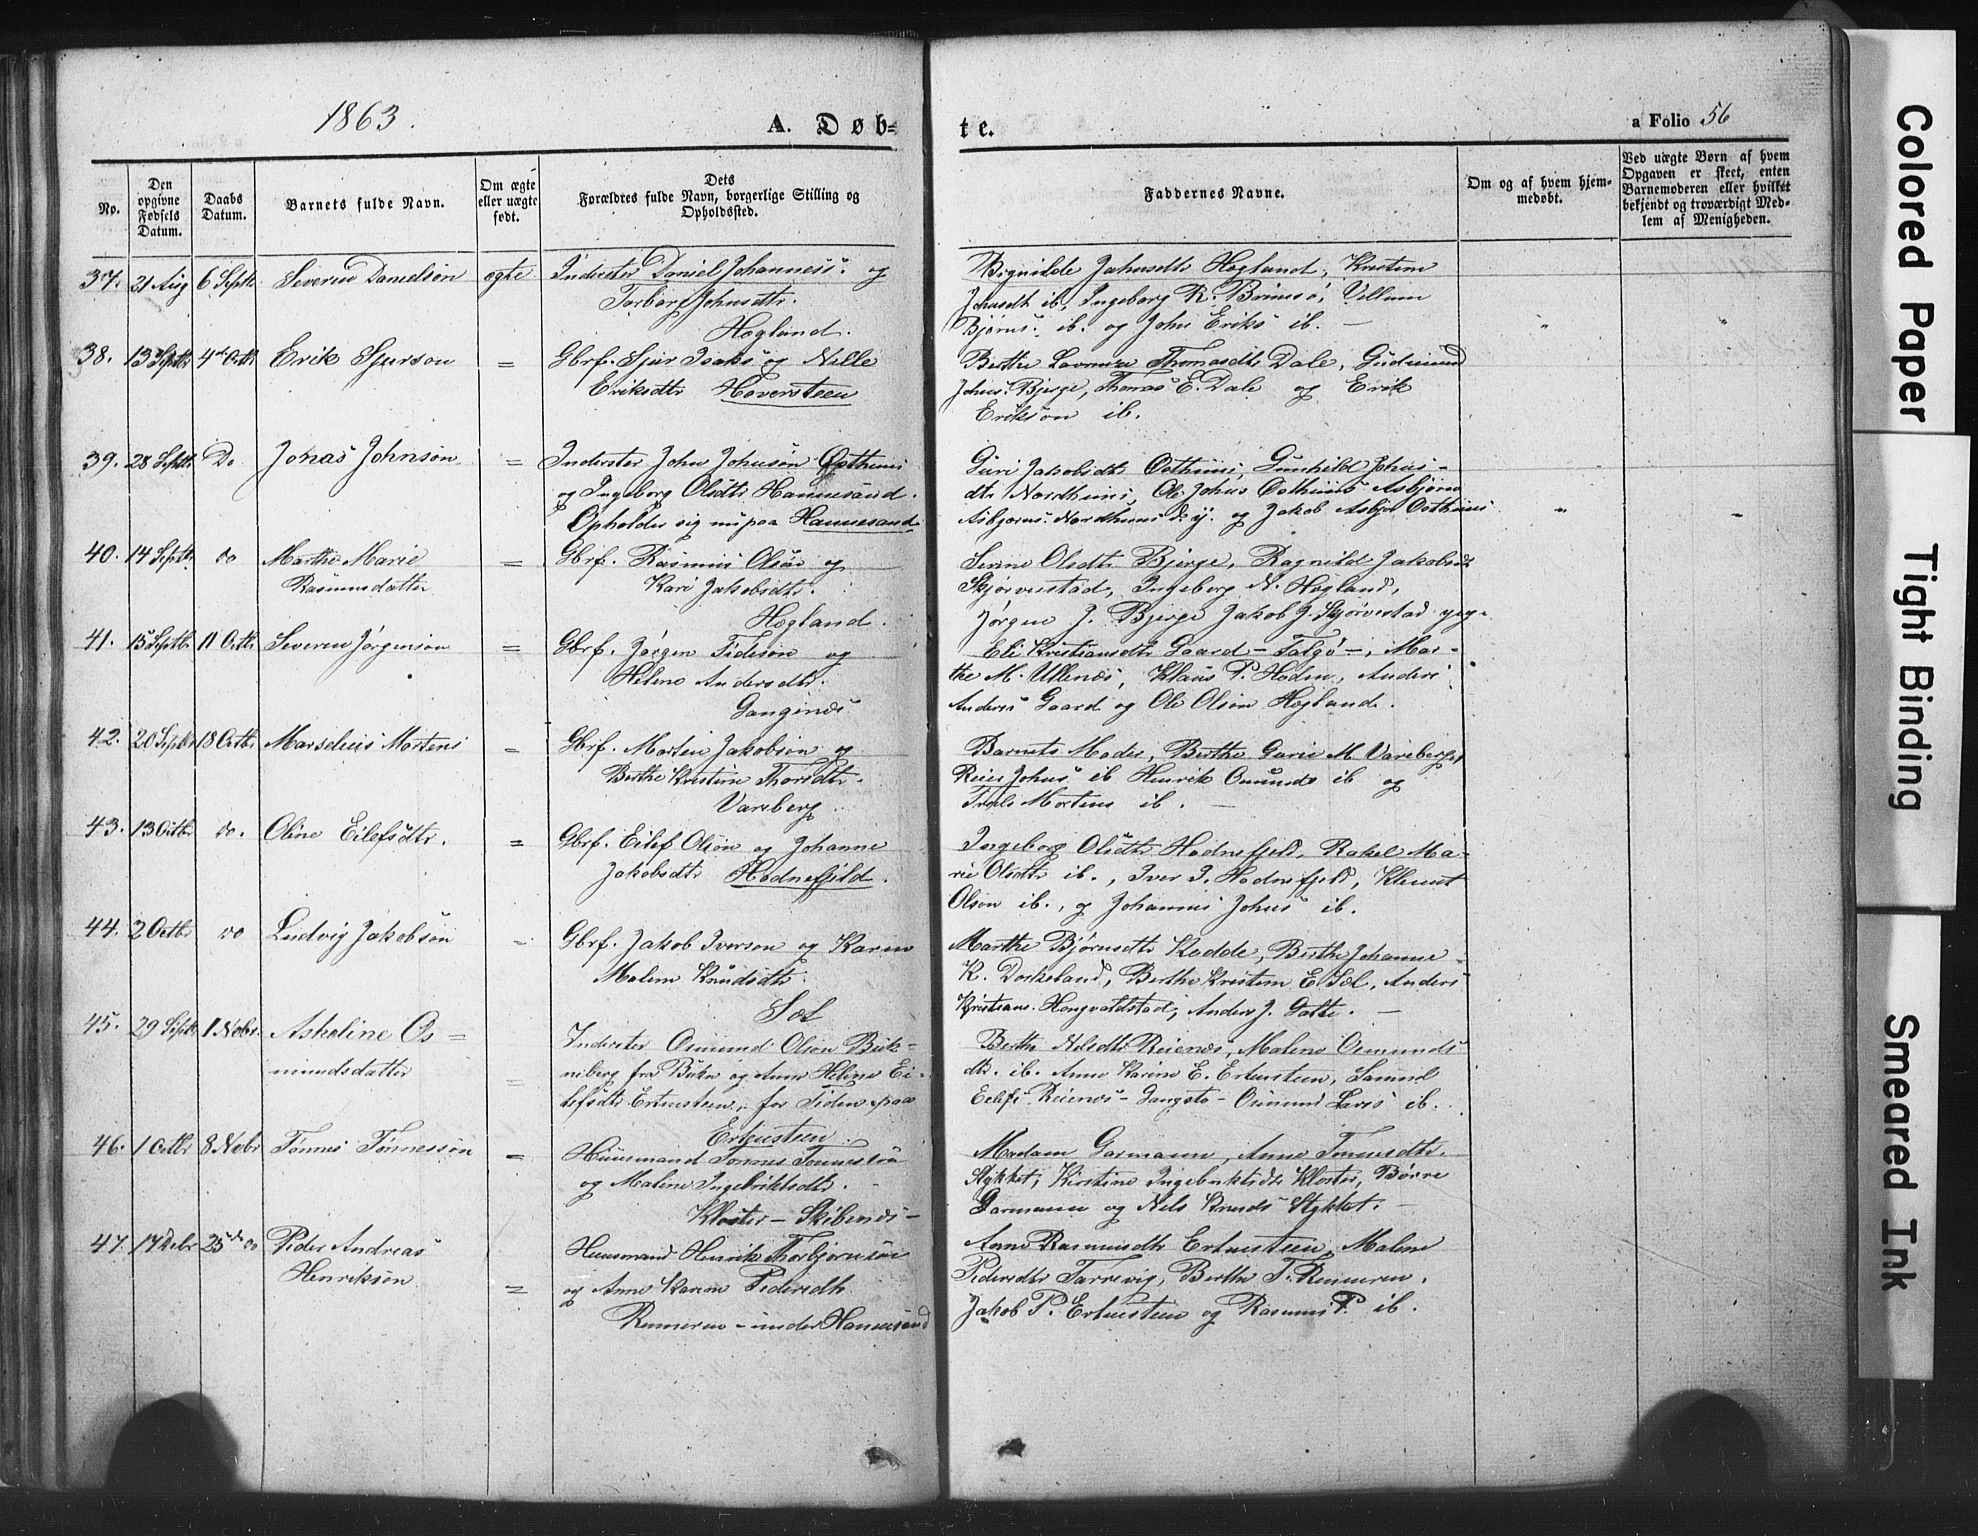 1863.
A. Døb-
te.
a Folio 56
No.
Den opgivne Fødsels Datum.
Daabs Datum.
Barnets fulde Navn.
Om ægte eller uægte født.
Dets
Forældres fulde Navn, borgerlige Stilling og
Opholdssted.
Faddernes Navne.
Om og af hvem hjem-
medøbt.
Ved uægte Børn af hvem
Opgaven er skeet, enten
Barnemoderen eller hvilket
bekjendt og troværdigt Med-
lem af Menigheden.
37. 21 Aug 6 Septbr Severin Danielsøn ægte Inderster Daniel Johanness. og
Torborg Johnsdtr.
Hogland.
Johnsdtr ib, Ingeborg R. Brimsø, Villum
Bjørns. ib. og John Eriks ib. —
38. 13 Septbr 4de Octbr Erik Sjurson = Gbrf. Sjur Isaks og Nille
Eriksdtr Hoversteen
Berthe Lovrense Thomasdtr Dale, Gudmund
Johns. Bjerge, Thomas E. Dale og Erik
Erikson ib.
39. 28 Septbr Do Jonas Johnson = Inderster John Johnsøn Østhuus
og Ingeborg Olsdtr Hannesand.
Opholder sig nu paa Hannesand.
Guri Jakobsdtr Osthuus, Gunhild Johns-
dtr Nordhuus, Ole Johns Osthuus Asbjørn
Asbjørns. Nordhuus d.y. og Jakob Asbjør Osthuus
40. 14 Septbr do Marthe Marie
Rasmusdatter = Gbrf. Rasmus Olsøn og
Kari Jakobsdtr.
Hogland.
Serine Olsdtr Bjerge, Ragnild Jakobsdtr
Skjørvestad, Ingeborg N. Hogland,
Jørgen J. Bjerge Jakob J. Skjørvestad
41. 15 Septbr 11 Octbr Severin Jørgenson = Gbrf. Jørgen Tideson og
Helene Andersdtr.
Gangenes
Eli Kristiansdtr Gaard — Talgø —, Mar-
the M. Ullenes, Klaus P. Hoden, Anders
Anders Gaard og Ole Olson Hogland.
42. 20 Septbr 18 Octbr Marselius Mortens = Gbrf. Morten Jakobson og
Berthe Kristine Thorsdtr.
Vareberg.
Barnets Moder, Berthe Gurie M. Vareberg,
Reier Johns ib Henrik Omunds ib og
Mortens ib. —
43. 13 Octbr do. Oline Eilefsdtr. = Gbrf. Eilef Olson og Johanne
Jakobsdtr Hodnefjeld.
Ingeborg Olsdtr Hodnefjeld, Rakel Ma-
rie Olsdtr ib., Iver I. Hodnefjeld, Klemet
Olson ib., og Johannes Johns ib.
44. 2 Octbr do Ludvig Jakobson = Gbrf. Jakob Iverson og Karen
Malene Knudsdtr.
Sæl
Marthe Bjørnsdtr Kodde, Berthe Johanne
K. Dorkeland, Berthe Kristine E. Sæl, Anders
Kristians. Hongvaldstad, Anders J. Gatte. —
45. 29 Septbr 1 Nobr. Askeline Os-
mundsdatter = Inderster Osmund Olson Bok-
neberg fra Bukn og Anne Helene Ei-
lefsdtr Erteusteen, for Tiden paa
Erteusteen.
Berthe Nilsdtr Reienes, Malene Osmunds
dtr. ib. Anne Karine E. Erteusteen, Samuel
Eilefs Reienes — — Osmund Lars ib.
46. 1 Octbr 8 Nobr Tønnes Tønnessøn = Huusmand Tønnes Tønnessøn
og Malene Ingebriktsdtr.
Kloster — Skibenes —
Madam Garmann, Anne Tønnesdtr.
Stykket, Kirstine Ingebriktsdtr Kloster, Børre
Garmann og Nils Knuds Stykket. —
47. 17 Debr 25 do Peder Andreas
Henriksøn = Huusmand Henrik Thorbjørnsøn
og Anne Karine Pedersdtr.
Renneren — under Hannesand
Anne Rasmusdtr Erteusteen, Malene
Pedersdtr Tarrevig, Berthe T. Renneren.
Jakob P. Erteusteen og Rasmus P. ib.
Colored Paper
Tight Binding
Smeared Ink